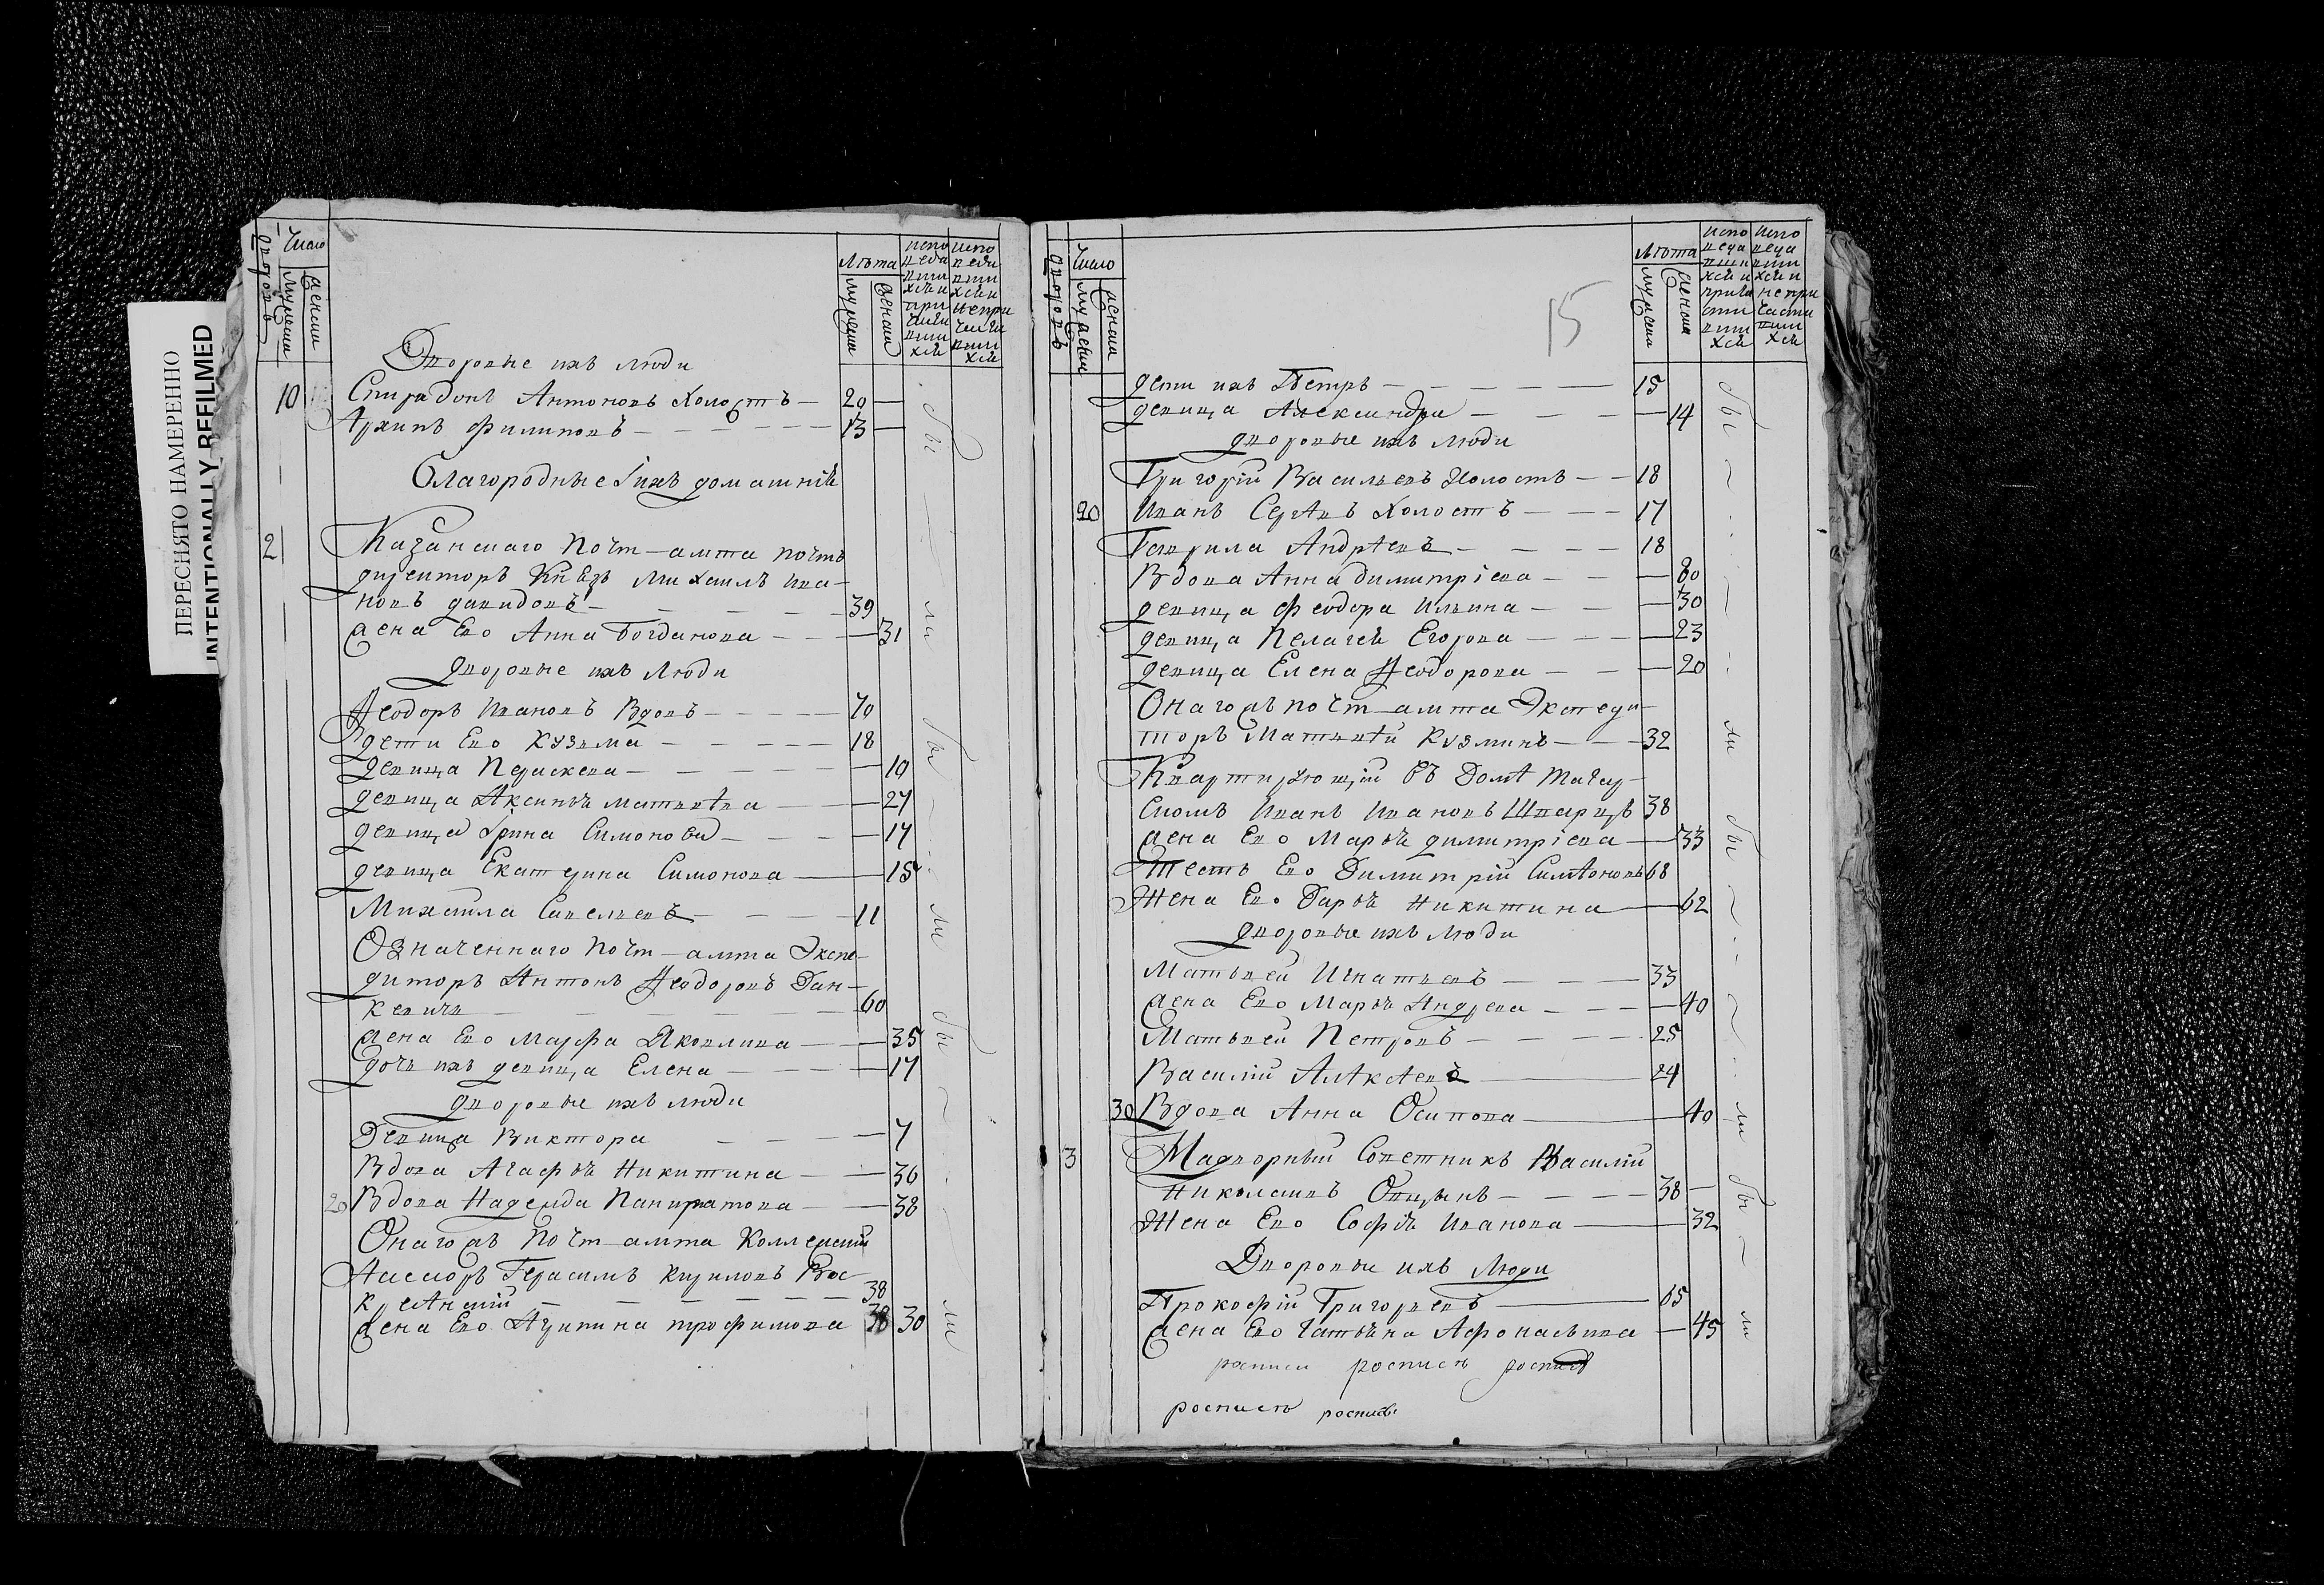 ПЕРЕСНЯТО НАМЕРЕННО
INTENTIONALLY REFILMED
дворовъ
Число
мужеска
женска
Лѣта
мужеска
женска
испо
веда
вши
хся и
при
части
вши
хся
испо
веда
вши
хся и
непри
части
вши
хся
Дворовые ихъ люди
10 Спиридонъ Антоновъ холостъ — 20 —
Архипъ Филиповъ — 13 —
Благородные і ихъ домашнія
2 Казанскаго почт-амта почтъ
директоръ Князь Михаилъ Ива-
новъ Давидовъ — 39
жена Ево Анна Богданова — 31
дворовые ихъ люди
Ѳеодоръ Ивановъ Вдовъ — 70
дети Ево Кузьма — 18
девица Параскева — 10
девица Аксинья Матвѣева — 27
девица Ірина Симонова — 17
девица Екатерина Симонова — 15
Михаила Савельевъ — 11
Означеннаго почт-амта Экспе-
диторъ Антонъ Ѳеодоровъ Дан-
кевичь — 60
жена Ево Марфа Яковлива — 35
дочь ихъ девица Елена — 17
дворовые ихъ люди
Девица Виктора — 7
Вдова Агафья Никитина — 36
20 Вдова Надежда Панкратова — 38
Онагожъ почт-амта Коллежский
Ассесоръ Герасимъ Кириловъ Вос-
кресѣнский — 38
жена Ево Агрипина трофимова 38 30
бы ли бы ли бы ли
дворовъ
Число
мужеска
женска
15
Лѣта
мужеска
женска
испо
веда
вши
хся и
прича
сти
вши
хся
испо
веда
вши
хся и
непри
части
вши
хся
дети ихъ Петръ — 15
девица Александра — 14
дворовые ихъ люди
Григорій Васильевъ холостъ — 18
20 Иванъ Сергѣвъ холостъ — 17
Гаврила Андрѣевъ — 18
Вдова Анна Димитріева — 80
девица Феодора Ильина — 30
девица Пелагея Егорова — 23
девица Елена Ѳеодорова — 20
Онагожъ почт-амта Экспеди-
торъ Матвѣй Кузминъ — 32
Квартирующій въ Домѣ
Иванъ Ивановъ Шварцъ 38
жена Ево Марья Димитріева — 33
Тесть Ево Димитрій Симѣоновъ 68
Жена Ево Дарья Никитина — 62
дворовые ихъ люди
Матьвей Игнатьевъ — 33
жена Ево Марья Андрева — 40
Матьвей Петровъ — 25
Василій Алѣксѣевъ — 24
30 Вдова Анна Осипова — 40
3 Надворный Советникъ Василій
Николаивъ — 38 —
Жена Ево Софія Иванова — 32
Дворовые ихъ люди
Прокофій Григорьевъ — 65
жена Ево Татьяна Афонасьива — 45
росписи роспись роспись
роспись роспись
бы ли бы ли бы ли